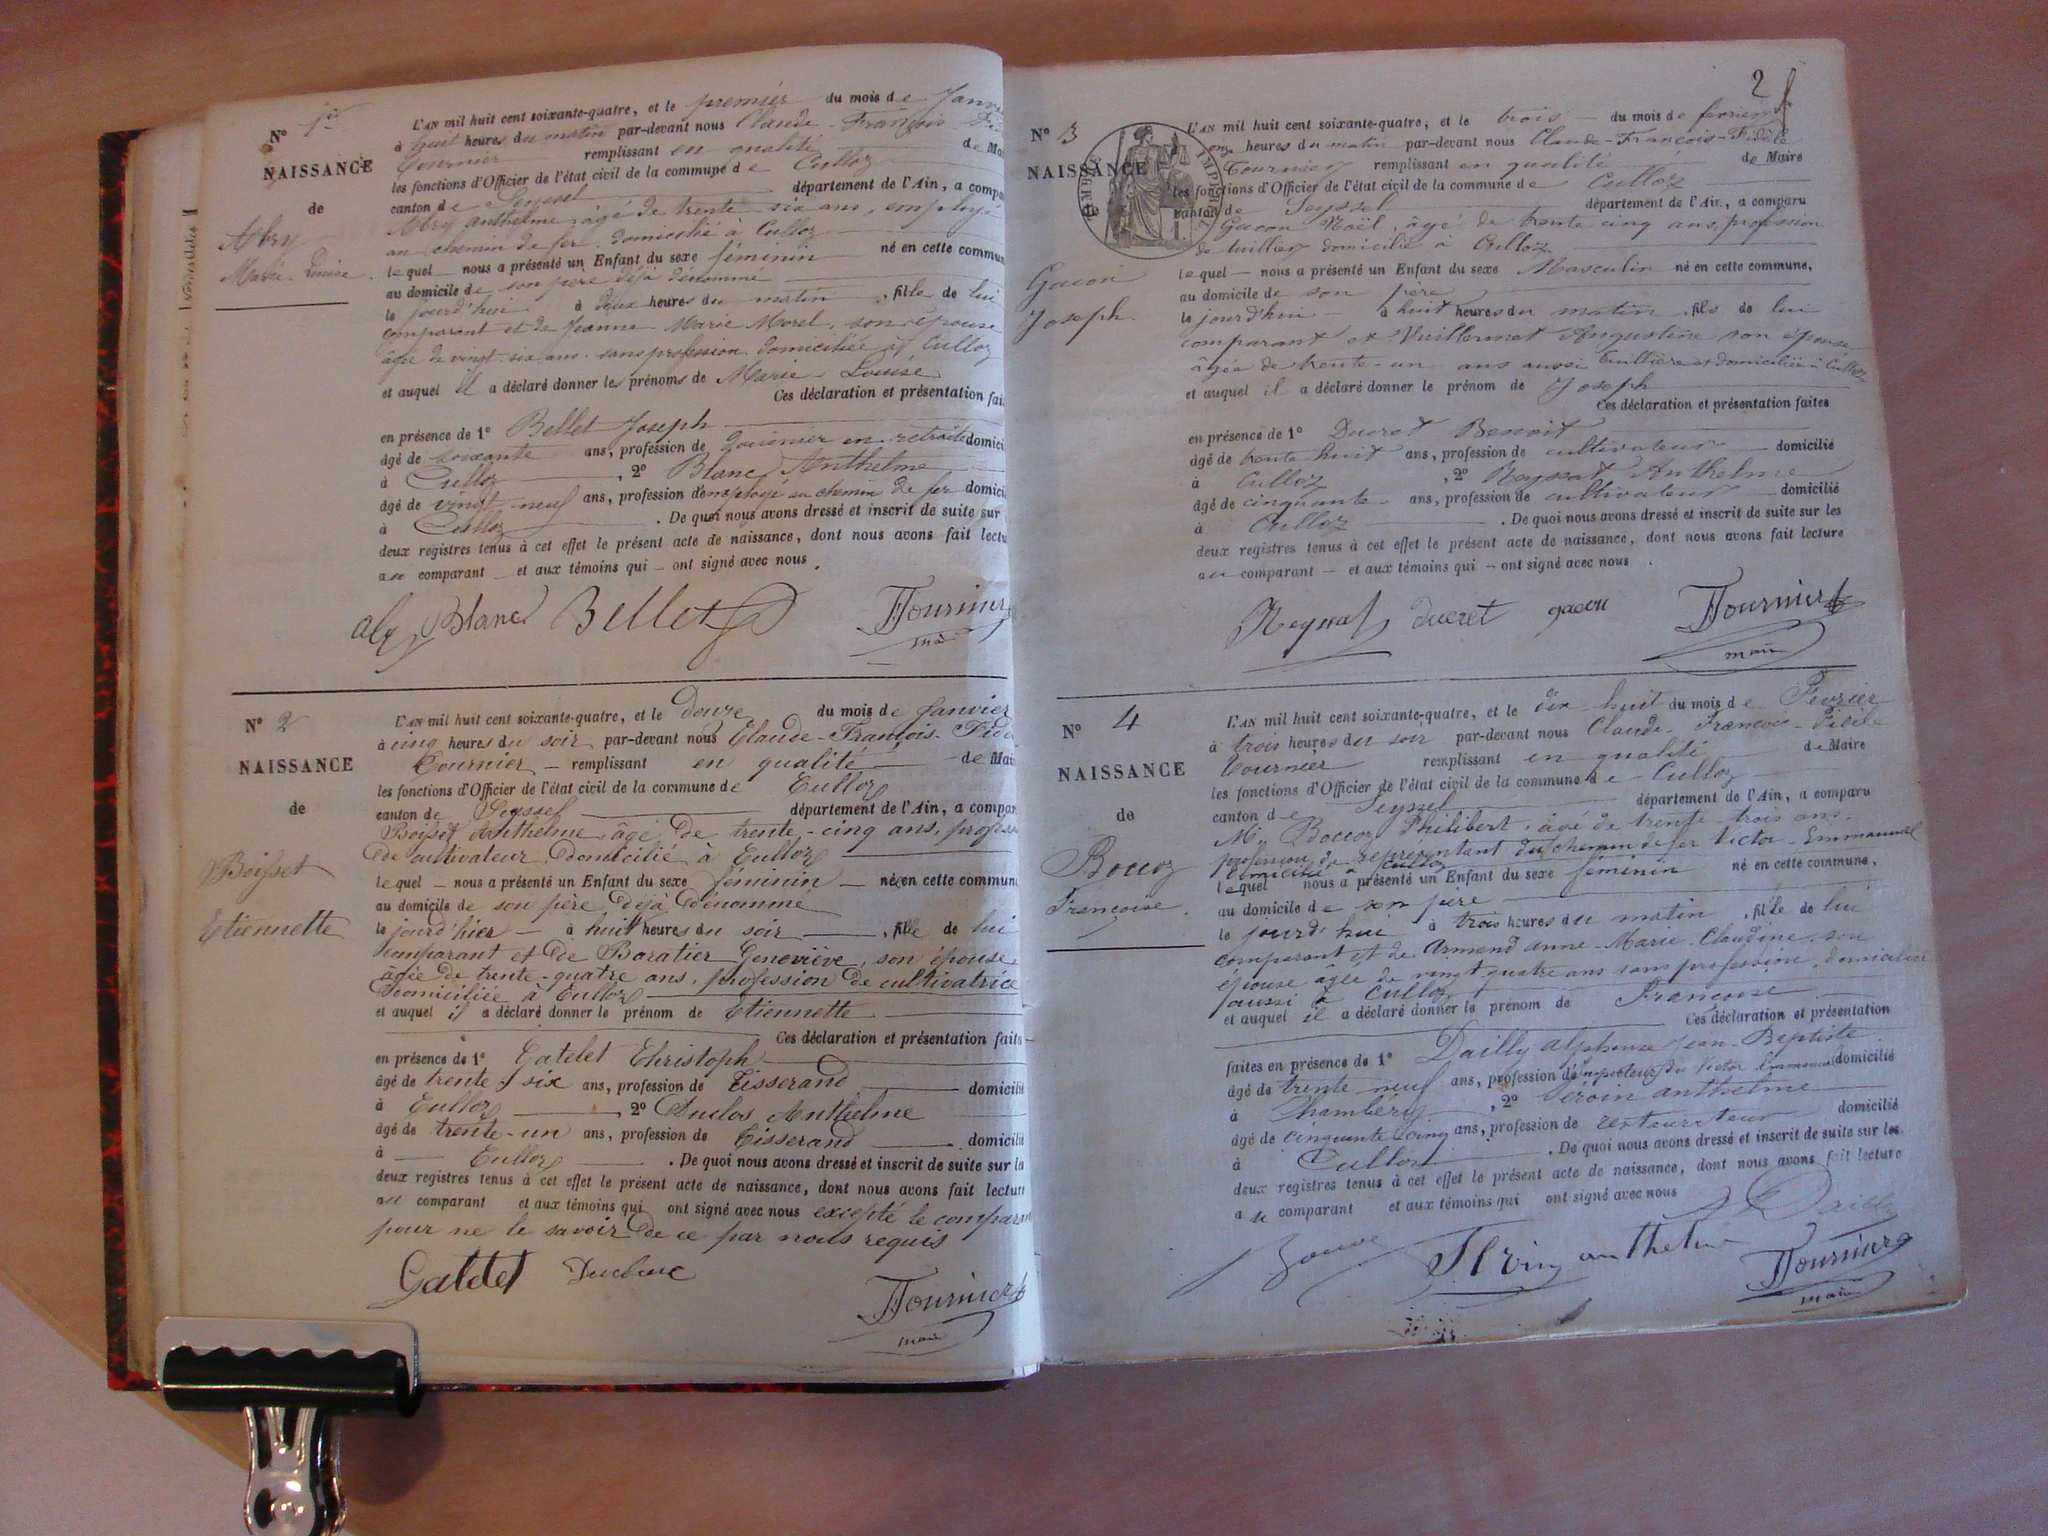 N° 1er
NAISSANCE
de
Abry
Marie Louise
L'AN mil huit cent soixante-quatre, et le premier du mois de Janvi
à huit heures du matin par-devant nous Claude-François
Tournier remplissant en qualité de Mai
les fonctions d'Officier de l'état civil de la commune de Culloz
canton de Seyssel département de l'Ain, a compa
Abry Anthelme âgé de trente six ans, employé
au chemin de fer domicilié à Culloz
lequel nous a présenté un Enfant du sexe féminin né en cette commun
au domicile de son père déjà dénommé
le jourd'hui à deux heures du matin, fille de lui
comparant et de Jeanne Marie Morel, son épouse
âgée de vingt-six ans sans profession domiciliée à Culloz
et auquel il a déclaré donner les prénoms de Marie Louise
Ces déclaration et présentation fai
en présence de 1° Bellet Joseph
âgé de soixante ans, profession de douanier en retraite domici
à Culloz, 2° Blanc Anthelme
âgé de vingt-neuf ans, profession d'employé au chemin de fer domici
à Culloz. De quoi nous avons dressé et inscrit de suite sur
deux registres tenus à cet effet le présent acte de naissance, dont nous avons fait lectu
au comparant et aux témoins qui ont signé avec nous.
Blanc Bellet FTournier
N° 2
NAISSANCE
de
Boisset
Etiennette
L'AN mil huit cent soixante-quatre, et le douze du mois de Janvier
à cinq heures du soir par-devant nous Claude-François-Fidè
Tournier remplissant en qualité de Mai
les fonctions d'Officier de l'état civil de la commune de Culloz
canton de Seyssel département de l'Ain, a compar
Boisset Anthelme âgé de trente-cinq ans, profess
de cultivateur domicilié à Culloz
lequel nous a présenté un Enfant du sexe féminin née en cette commun
au domicile de son père déjà dénommé
le jourd'hier à huit heures du soir, fille de lui
comparant et de Boratier Geneviève, son épouse,
âgée de trente-quatre ans, profession de cultivatrice
domiciliée à Culloz
et auquel il a déclaré donner le prénom de Etiennette
Ces déclaration et présentation faites
en présence de 1° Gatelet Christoph
âgé de trente six ans, profession de Tisserand domicilié
à Culloz, 2° Duclos Anthelme
âgé de trente-un ans, profession de Tisserand domicilié
à Culloz. De quoi nous avons dressé et inscrit de suite sur l
deux registres tenus à cet effet le présent acte de naissance, dont nous avons fait lecture
au comparant et aux témoins qui ont signé avec nous excepté le compar
pour ne le savoir de ce par nous requis
Gatelet FTournier
maire
2
N° 3
NAISSANCE
TIMBRE IMPERIAL
de
Gacon
Joseph
L'AN mil huit cent soixante-quatre, et le trois du mois de fevrier
à onze heures du matin par-devant nous Claude-François-Fidèle
Tournier remplissant en qualité de Maire
les fonctions d'Officier de l'état civil de la commune de Culloz
canton de Seyssel département de l'Ain, a comparu
Gacon Noël, âgé de trente cinq ans, profession
de tuillier domicilié à Culloz
lequel nous a présenté un Enfant du sexe Masculin né en cette commune,
au domicile de son père
le jourd'hui à huit heures du matin, fils de lui
comparant et Vuillermet Augustine son épouse
âgée de trente-un ans aussi tuillière et domiciliée à Culloz
et auquel il a déclaré donner le prénom de Joseph
Ces déclaration et présentation faites
en présence de 1° Ducret Benoit
âgé de trente huit ans, profession de cultivateur domicilié
à Culloz, 2° Reyssat Anthelme
âgé de cinquante ans, profession de cultivateur domicilié
à Culloz. De quoi nous avons dressé et inscrit de suite sur les
deux registres tenus à cet effet le présent acte de naissance, dont nous avons fait lecture
au comparant et aux témoins qui ont signé avec nous.
ducret gacon FTournier
maire
N° 4
NAISSANCE
de
Boccoz
Françoise
L'AN mil huit cent soixante-quatre, et le dix huit du mois de Fevrier
à trois heures du soir par-devant nous Claude-François-Fidèle
Tournier remplissant en qualité de Maire
les fonctions d'Officier de l'état civil de la commune de Culloz
canton de Seyssel département de l'Ain, a comparu
Mr Boccoz Philibert, âgé de trente trois ans,
profession de représentant du chemin de fer Victor-Emmanuel
domicilié à Culloz
lequel nous a présenté un Enfant du sexe féminin né en cette commune,
au domicile de son père
le jourd'hui à trois heures du matin, fille de lui
comparant et de Armand Anne-Marie-Claudine son
épouse âgée de vingt quatre ans sans profession, domiciliée
aussi à Culloz
et auquel il a déclaré donner le prénom de Françoise
Ces déclaration et présentation
faites en présence de 1° Dailly Alphonse Jean-Baptiste
âgé de trente neuf ans, profession d'inspecteur du Victor Emmanuel domicilié
à Chambéry, 2° Seroin Anthelme
âgé de cinquante cinq ans, profession de restaurateur domicilié
à Culloz. De quoi nous avons dressé et inscrit de suite sur les
deux registres tenus à cet effet le présent acte de naissance, dont nous avons fait lecture
au comparant et aux témoins qui ont signé avec nous
Dailly
anthelme FTournier
maire